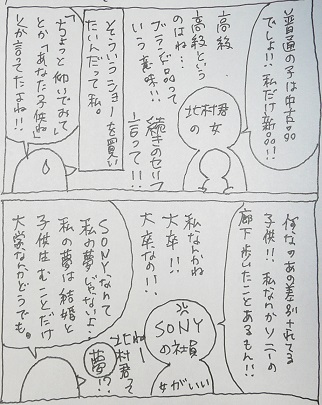 普通の子は中古品
でしょ!!私だけ新品!!
北村君
の女
高級
高級という
のはね…
ブランド品って
いう意味!!
続きのセリフ
言って!!
そういうショーを買い
たいんだって私。
「ちょっと仰いでみて」
とか「あなた子供ね」
とか言ってたよね!!
何なのあの差別されてる
子供!!私なんかソニーの
廊下歩いたことあるもん!!
SONY
の社員
女がいい
私なんかね
大卒!!
大卒なの!!
ねー
北村君て
夢!?
SONYなんて
私の夢じゃないよ。
私の夢は結婚と
子供生むことだけ
大学なんかどうでも。